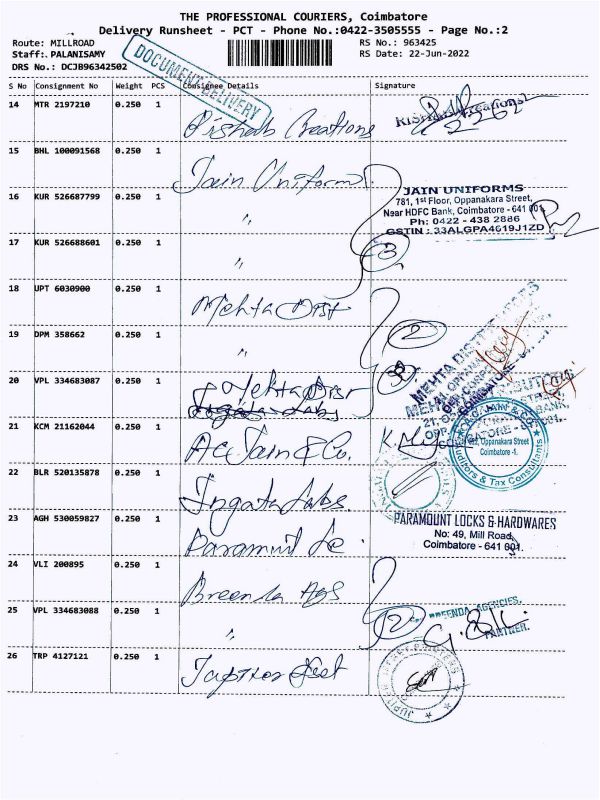 THE PROFESSIONAL COURIERS, Coimbatore
Delivery Runsheet - PCT - Phone No.:0422-3505555 - Page No.:2
Route: MILLROAD
RS No.: 963425
Staff: PALANISAMY
RS Date: 22-Jun-2022
DRS No.: DCJB96342502
DOCUMENT DELIVERY
S No Consignment No Weight PCS Consignee Details Signature
14 MTR 2197210 0.250 1 Rishab Creations
15 BHL 100091568 0.250 1 Jain Uniforms
16 KUR 526687799 0.250 1 "
JAIN UNIFORMS
781, 1st Floor, Oppanakara Street,
Near HDFC Bank, Coimbatore - 641 001.
Ph: 0422 - 438 2886
GSTIN : 33ALGPA4619J1ZD
17 KUR 526688601 0.250 1 " 3
18 UPT 6030900 0.250 1 Mehta Dist
19 DPM 358662 0.250 1 " 2
20 VPL 334683087 0.250 1 Mehta Dist
21 KCM 21162044 0.250 1 AC Jain & Co.
Oppanakara Street
Coimbatore -1.
Auditors & Tax Consultants
22 BLR 520135878 0.250 1 Ingata Labs
23 AGH 530059827 0.250 1
PARAMOUNT LOCKS & HARDWARES
No: 49, Mill Road,
Coimbatore - 641 001.
24 VLI 200895 0.250 1 Breenda Ags
25 VPL 334683088 0.250 1 " 2
BREENDA AGENCIES,
PARTNER.
26 TRP 4127121 0.250 1